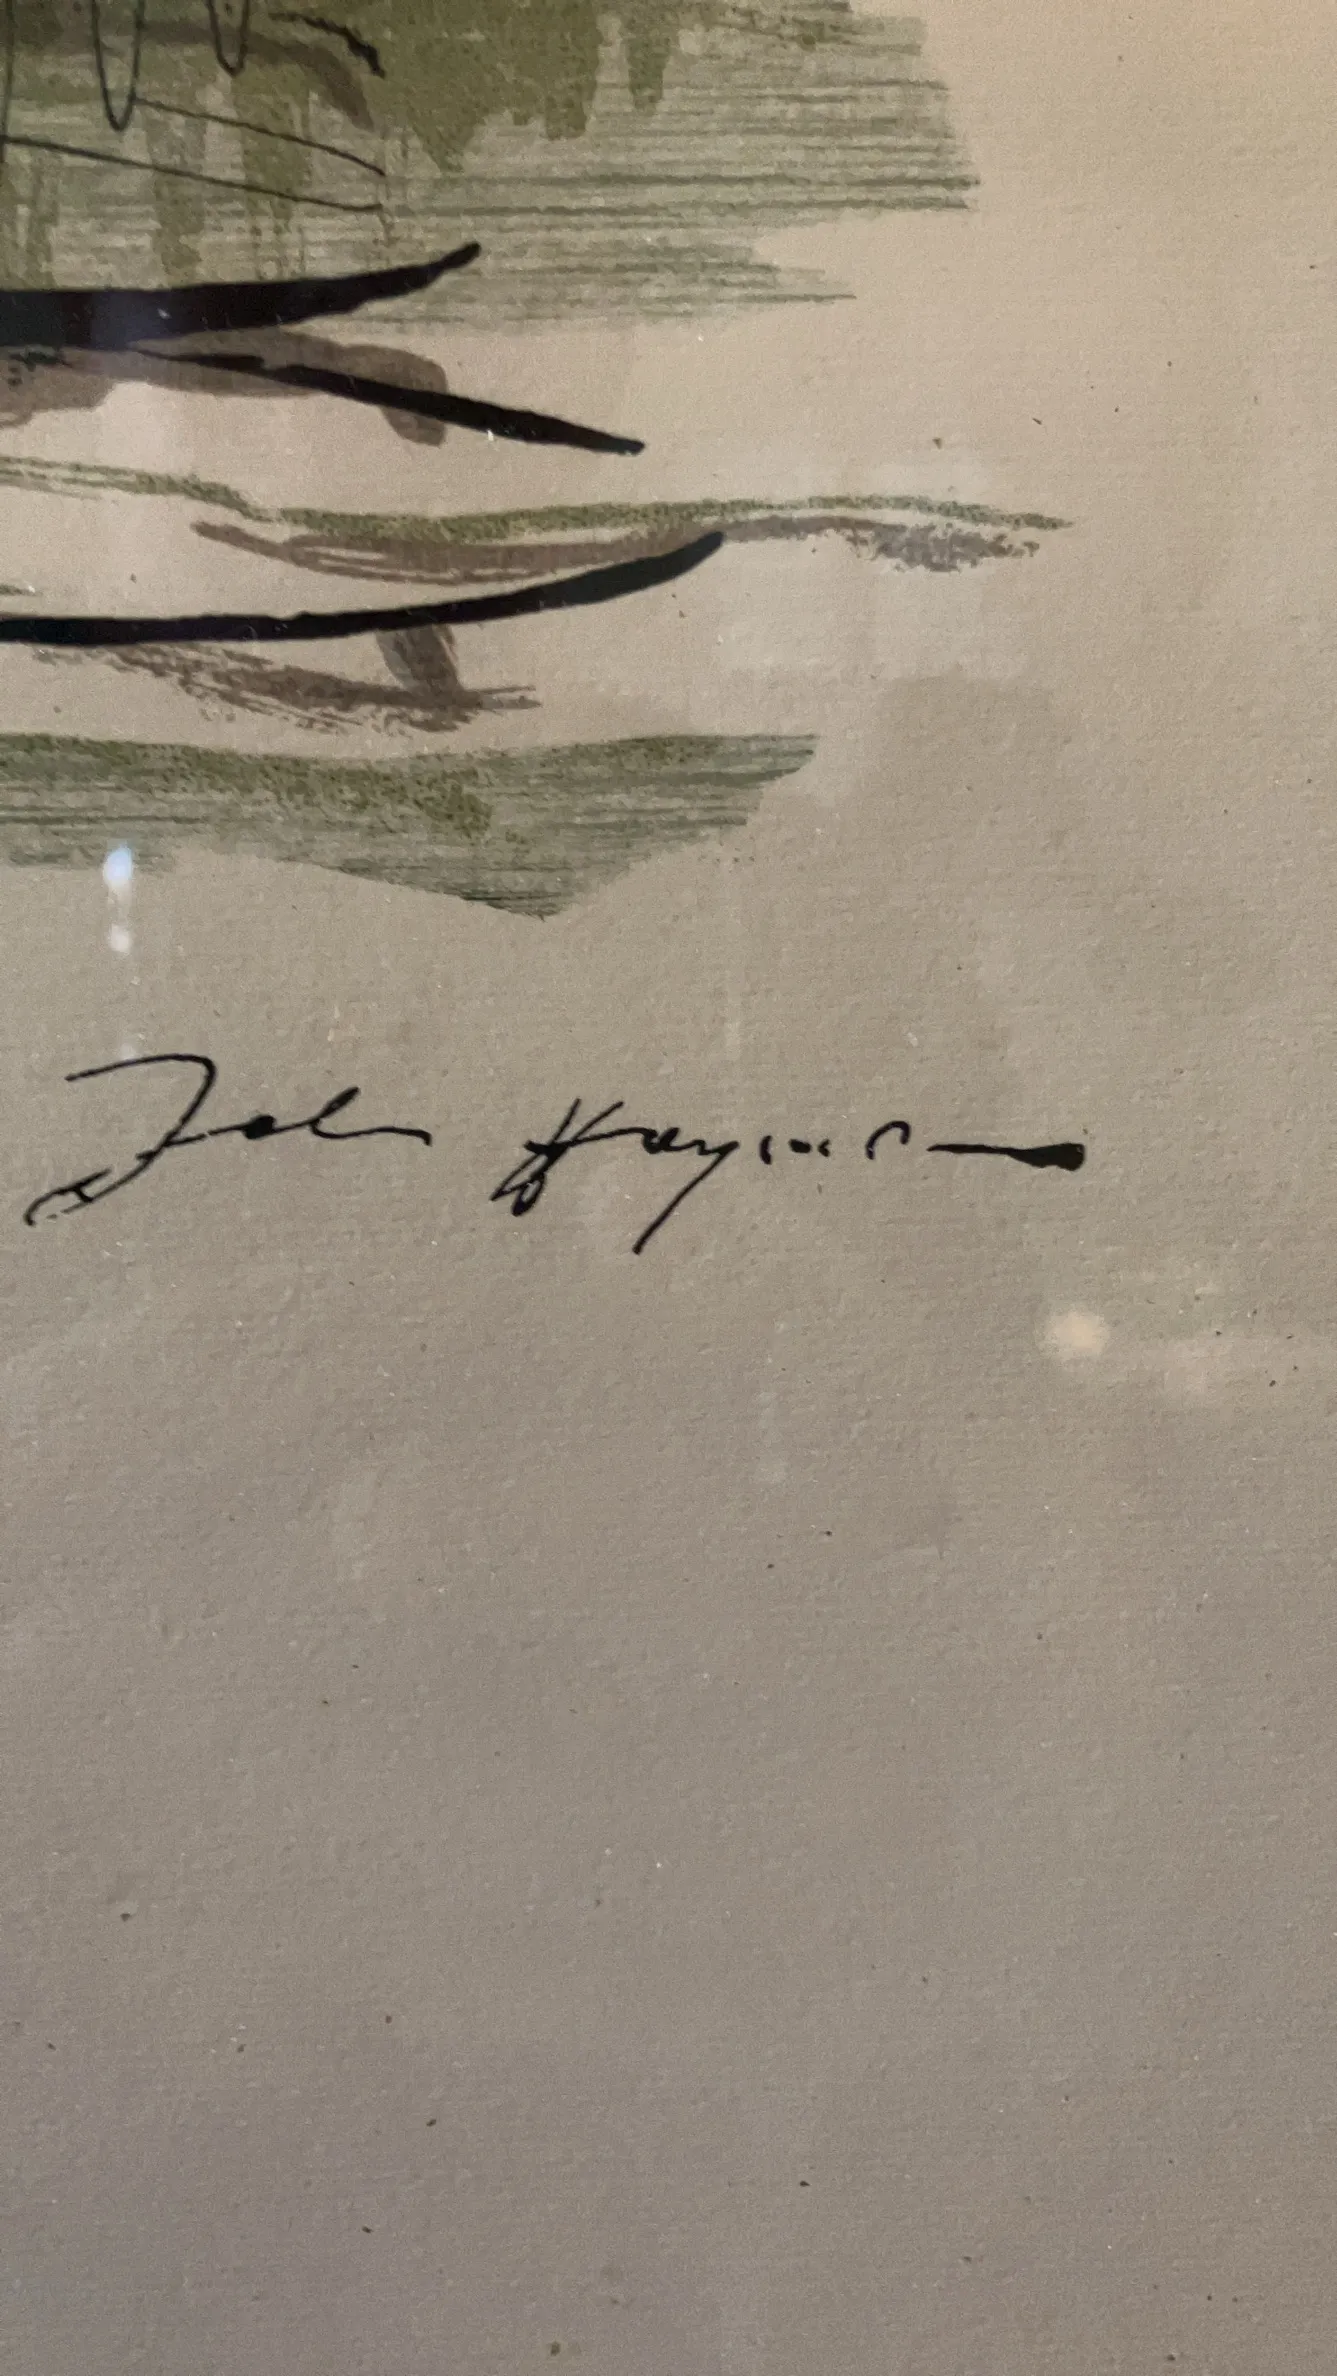 John Haymson